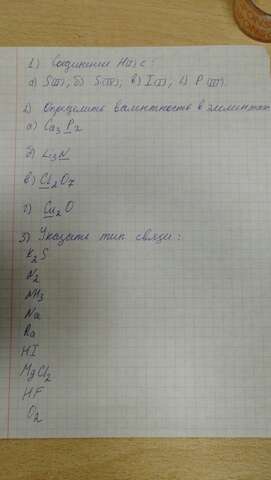 1) Соединения H(I) с:
а) S(II); б) S(IV); в) I(I); г) P(III)
2) Определить валентность в элементах
а) Ca3P2
б) Li3N
в) Cl2O7
г) Cu2O
3) Указать тип связи:
K2S
N2
NH3
Na
Ra
HI
MgCl2
HF
O2